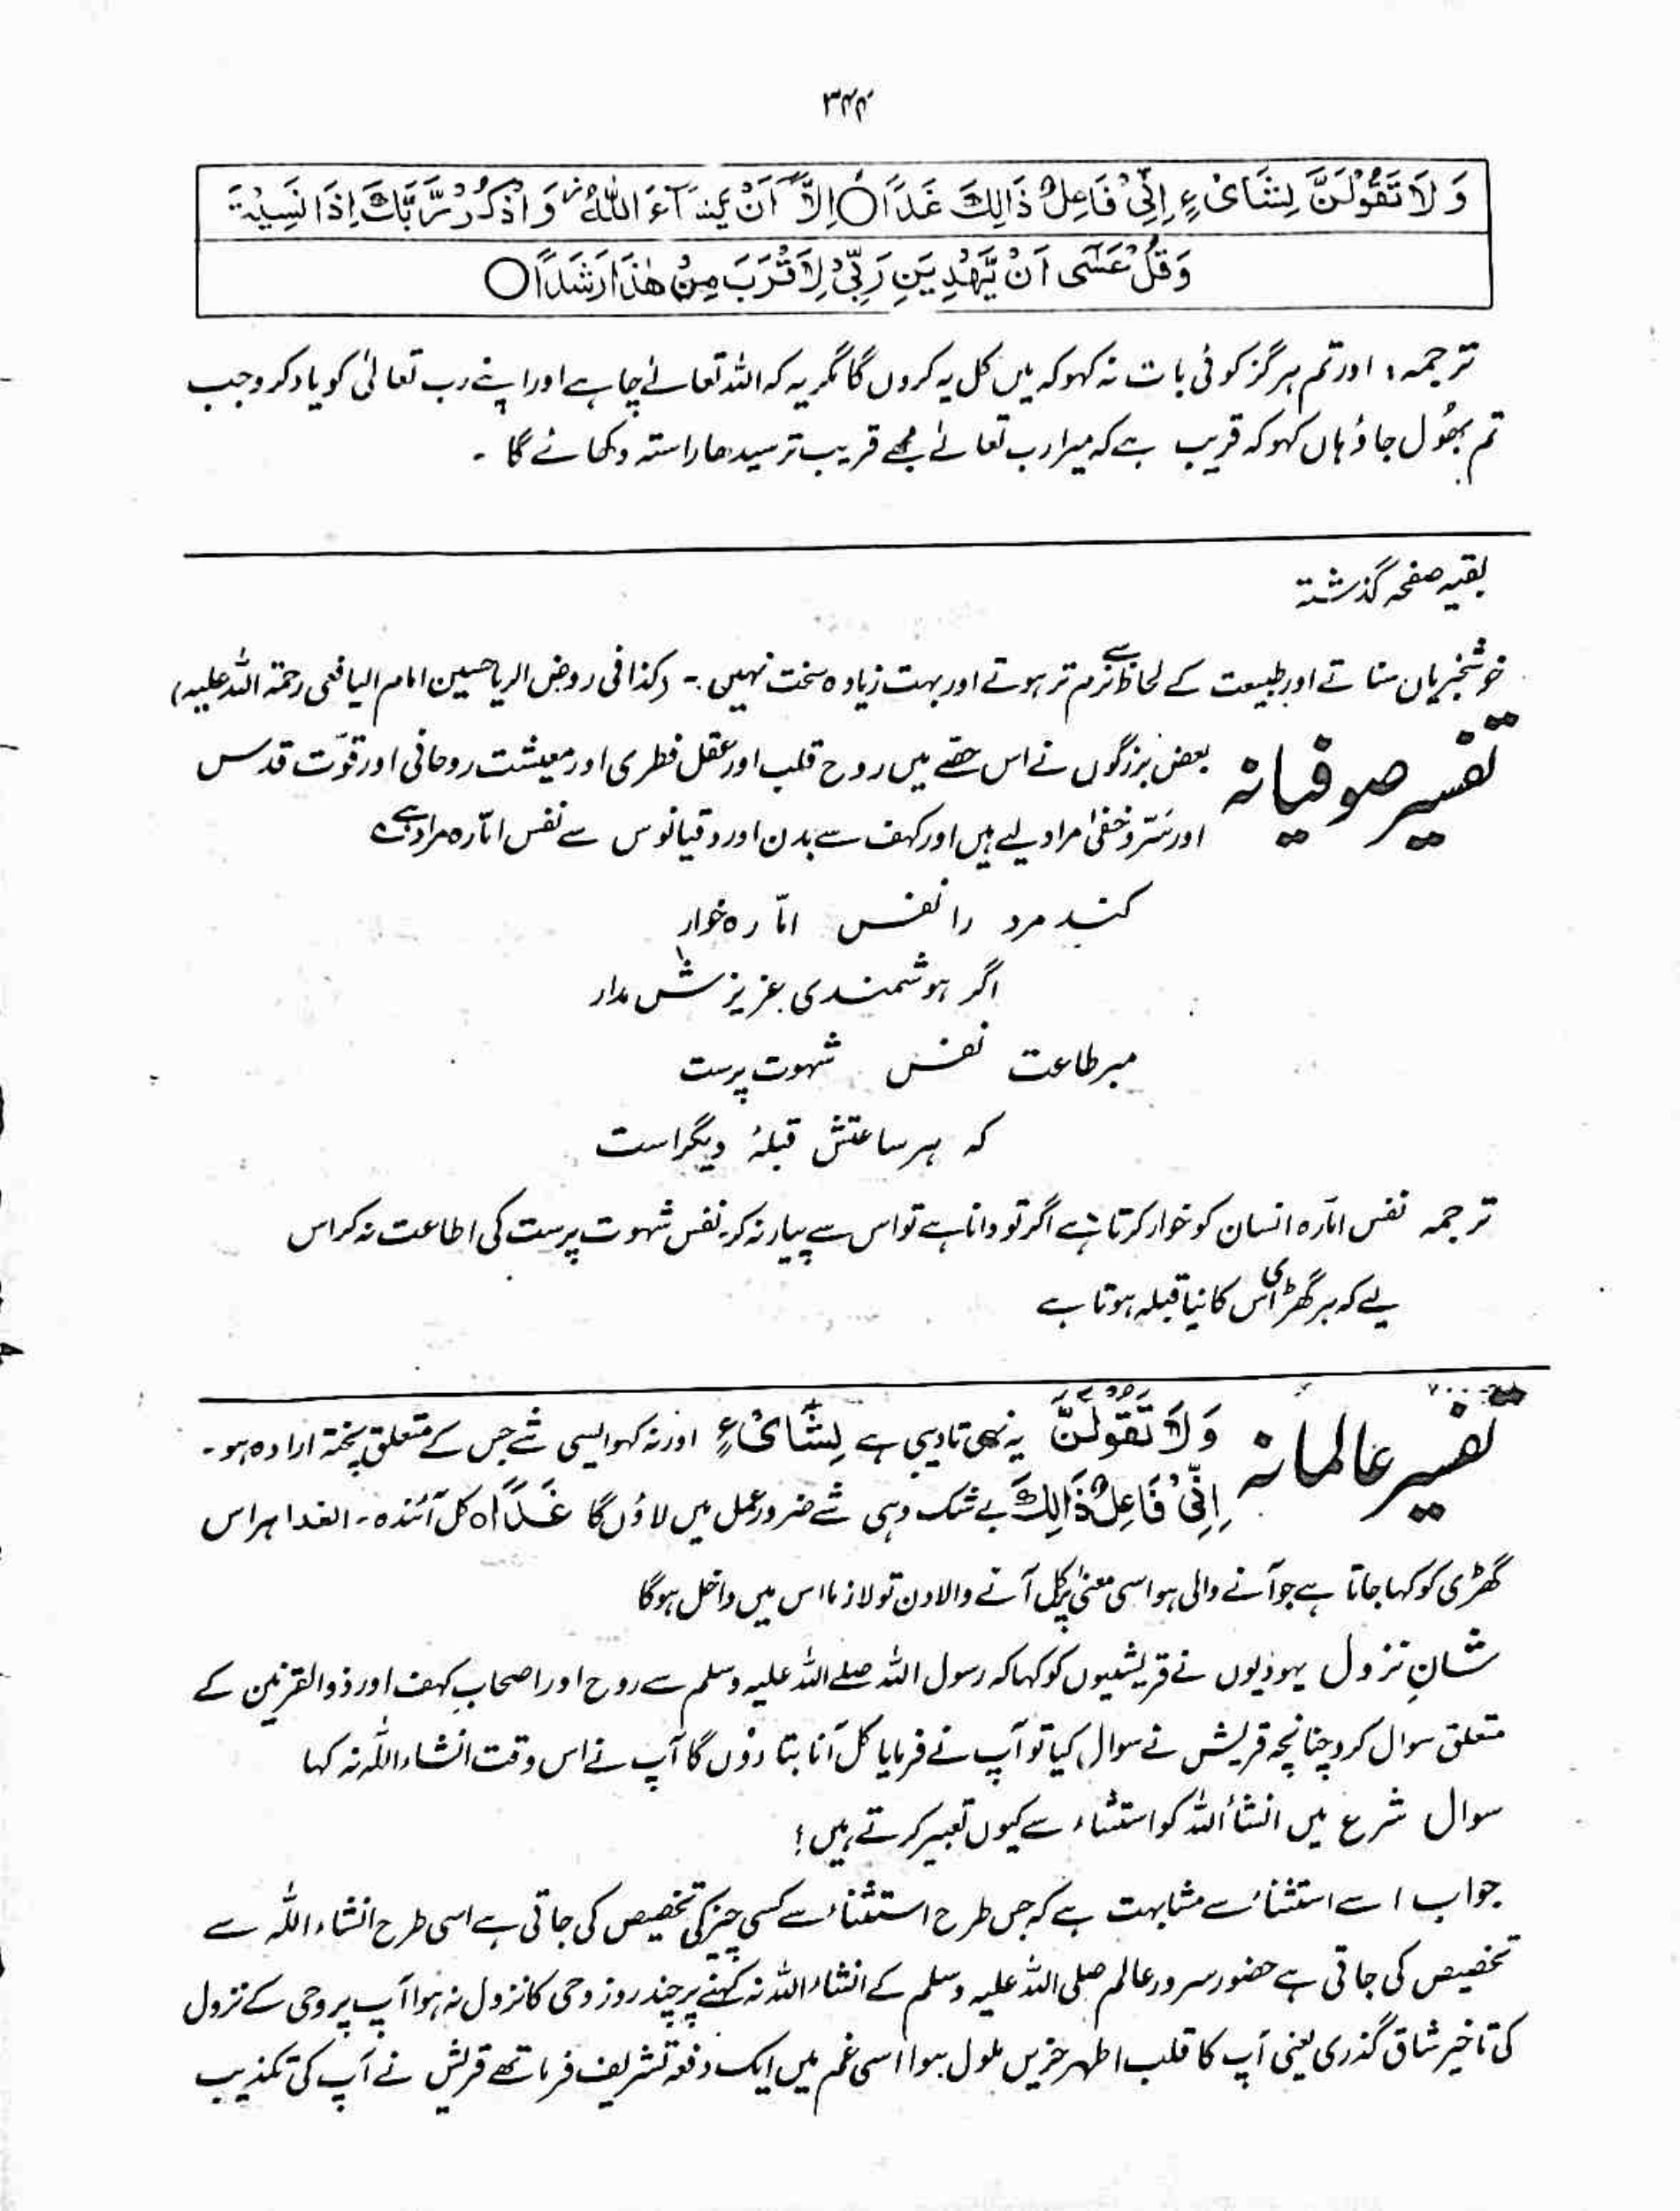 ۳۴۴
وَلَا تَقُوْلَنَّ لِشَایْءٍ اِنِّیْ فَاعِلٌ ذَالِكَ غَدًا○ اِلَّآ اَنْ يَّشَآءَ اللّٰهُ ز وَاذْكُرْ رَّبَّكَ اِذَا نَسِيْتَ
وَقُلْ عَسٰٓى اَنْ يَّهْدِيَنِ رَبِّیْ لِاَقْرَبَ مِنْ هٰذَا رَشَدًا○
ترجمہ : اور تم ہرگز کوئی بات نہ کہو کہ میں کل یہ کروں گا مگر یہ کہ اللہ تعالےٰ چاہے اور اپنے رب تعالیٰ کو یاد کرو جب
تم بھول جاؤ ہاں کہو کہ قریب ہے کہ میرا رب تعالےٰ مجھے قریب تر سیدھا راستہ دکھائے گا ۔
بقیہ صفحہ گذشتہ
خوشخبریاں سناتے اور طبیعت کے لحاظ سے نرم تر ہوتے اور بہت زیادہ سخت نہیں ۔ (کذا فی روض الریاحین امام الیافعی رحمۃ اللہ علیہ)
تفسیر صوفیانہ بعض بزرگوں نے اس حصّے میں روح قلب اور عقل فطری اور معیشت روحانی اور قوّت قدس
اور سرّ و خفیٰ مراد لیے ہیں اور کہف سے بدن اور دقیانوس سے نفس امّارہ مراد ہے ہ
کند مرد را نفس امّارہ خوار
اگر ہوشمندی عزیزش مدار
مبر طاعت نفس شہوت پرست
کہ ہر ساعتش قبلۂ دیگر است
ترجمہ نفس امّارہ انسان کو خوار کرتا ہے اگر تو دانا ہے تو اس سے پیار نہ کر نفس شہوت پرست کی اطاعت نہ کر اس
لیے کہ ہر گھڑی اس کا نیا قبلہ ہوتا ہے
تفسیر عالمانہ وَلَا تَقُوْلَنَّ یہ نہی تادیبی ہے لِشَایْءٍ اور نہ کہو ایسی شے جس کے متعلق پختہ ارادہ ہو ۔
اِنِّیْ فَاعِلٌ ذَالِكَ بے شک وہی شے ضرور عمل میں لاؤں گا غَدًا ہ کل آئندہ ۔ الغدا ہر اس
گھڑی کو کہا جاتا ہے جو آنے والی ہو اسی معنیٰ پر کل آنے والا دن تو لازما اس میں داخل ہوگا
شانِ نزول یہودیوں نے قریشیوں کو کہا کہ رسول اللہ صلے اللہ علیہ وسلم سے روح اور اصحابِ کہف اور ذوالقرنین کے
متعلق سوال کرو چنانچہ قریش نے سوال کیا تو آپ نے فرمایا کل آنا بتا دوں گا آپ نے اس وقت انشاء اللہ نہ کہا
سوال شرع میں انشأ اللہ کو استثناء سے کیوں تعبیر کرتے ہیں ؛
جواب اسے استثناء سے مشابہت ہے کہ جس طرح استثناء سے کسی چیز کی تخصیص کی جاتی ہے اسی طرح انشاء اللہ سے
تخصیص کی جاتی ہے حضور سرور عالم صلی اللہ علیہ وسلم کے انشاء اللہ نہ کہنے پر چند روز وحی کا نزول نہ ہوا آپ پر وحی کے نزول
کی تاخیر شاق گذری یعنی آپ کا قلب اطہر حزیں ملول ہوا اسی غم میں ایک دفعہ تشریف فرما تھے قریش نے آپ کی تکذیب